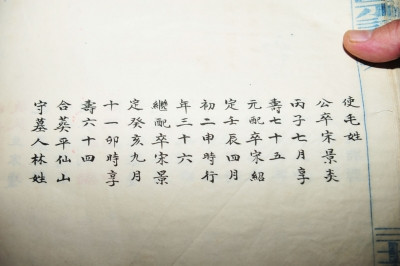 使毛姓
公卒宋景炎
丙子七月享
壽七十五
元配卒宋紹
定壬辰四月
初二申時行
年三十六
繼配卒宋景
定癸亥九月
十一卯時享
壽六十四
合葬平仙山
守墓人林姓